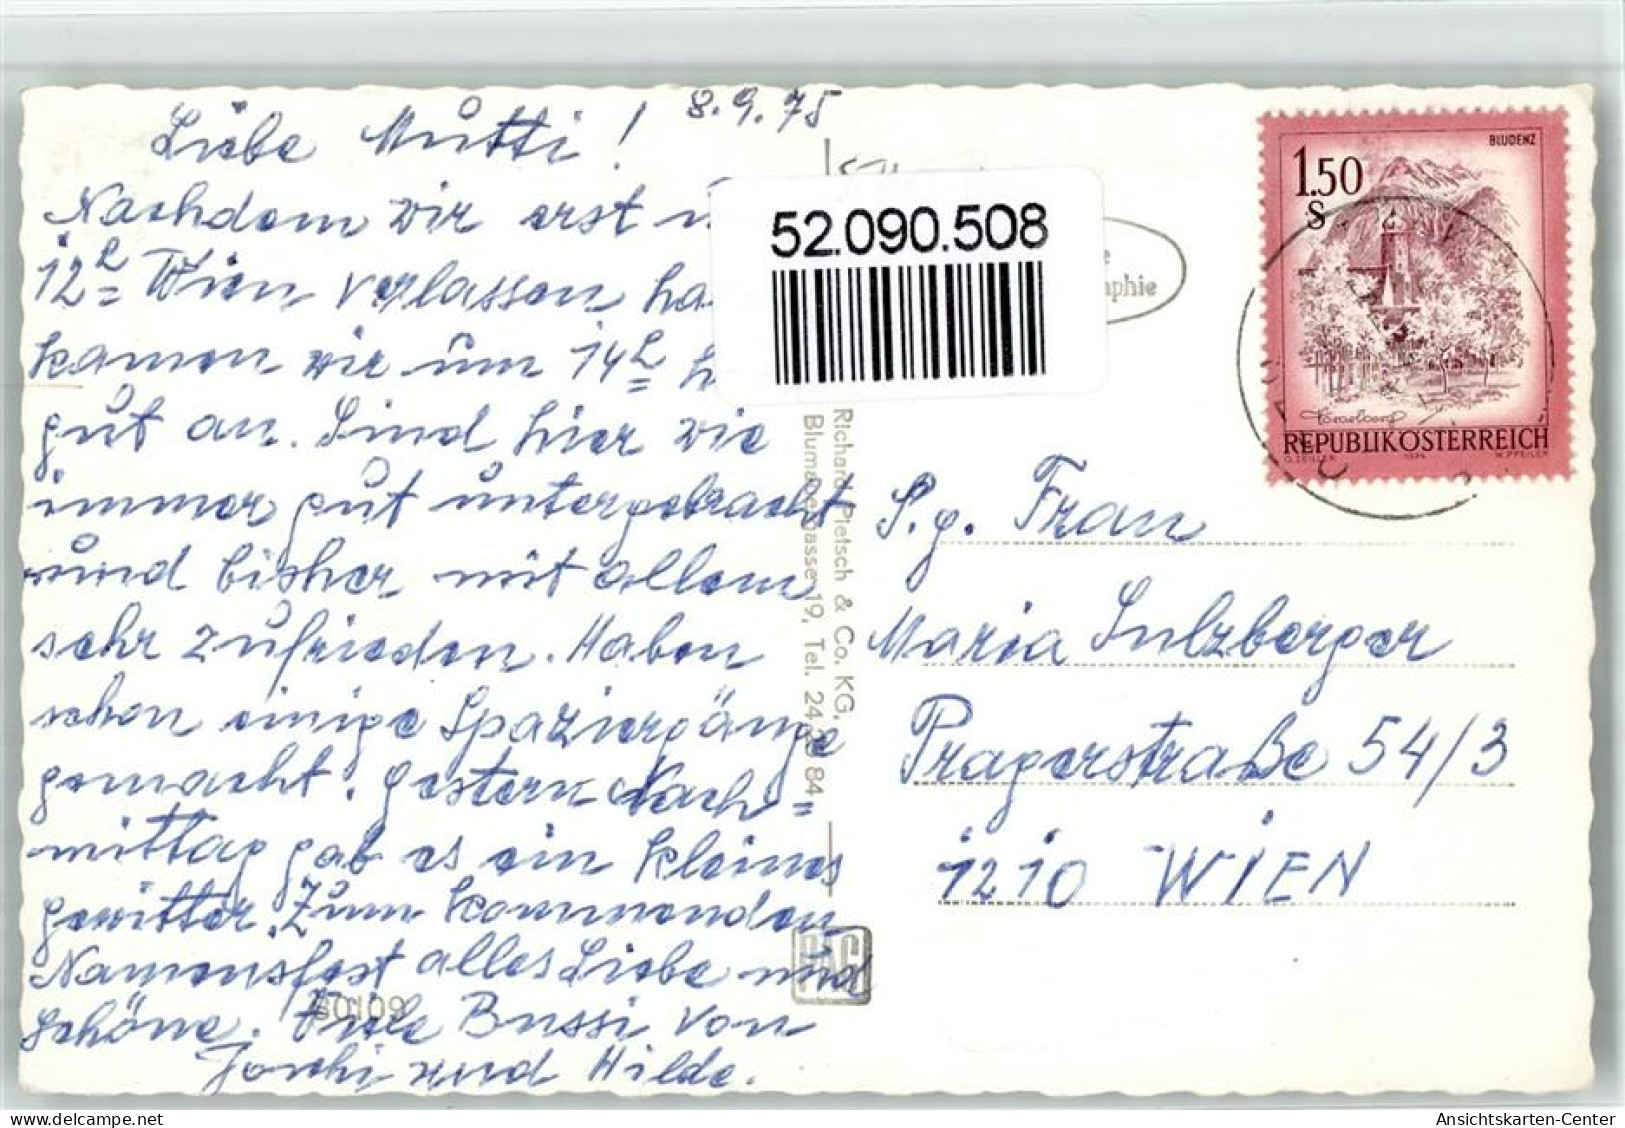 8.9.75
Liebe Mutti!
Nachdem wir erst
12h Wien verlassen ha
kamen wir um 14h h
gut an. Sind hier wie
immer gut untergebracht
und bisher mit allem
sehr zufrieden. Haben
schon einige Spaziergänge
gemacht. Gestern Nach=
mittag gab es ein kleines
Gewitter. Zum kommenden
Namensfest alles Liebe und
Schöne. Viele Bussi von
Joschi und Hilde.
80109
52.090.508
e
aphie
Richard Pietsch & Co. KG,
Blumauergasse 19, Tel. 24 84
PAG
BLUDENZ
1.50
S
Vorarlberg
REPUBLIK ÖSTERREICH
O. ZEILLER
W. PFEILER
S.g. Frau
Maria Sulzberger
Pragerstraße 54/3
1210 WIEN
Ansichtskarten-Center